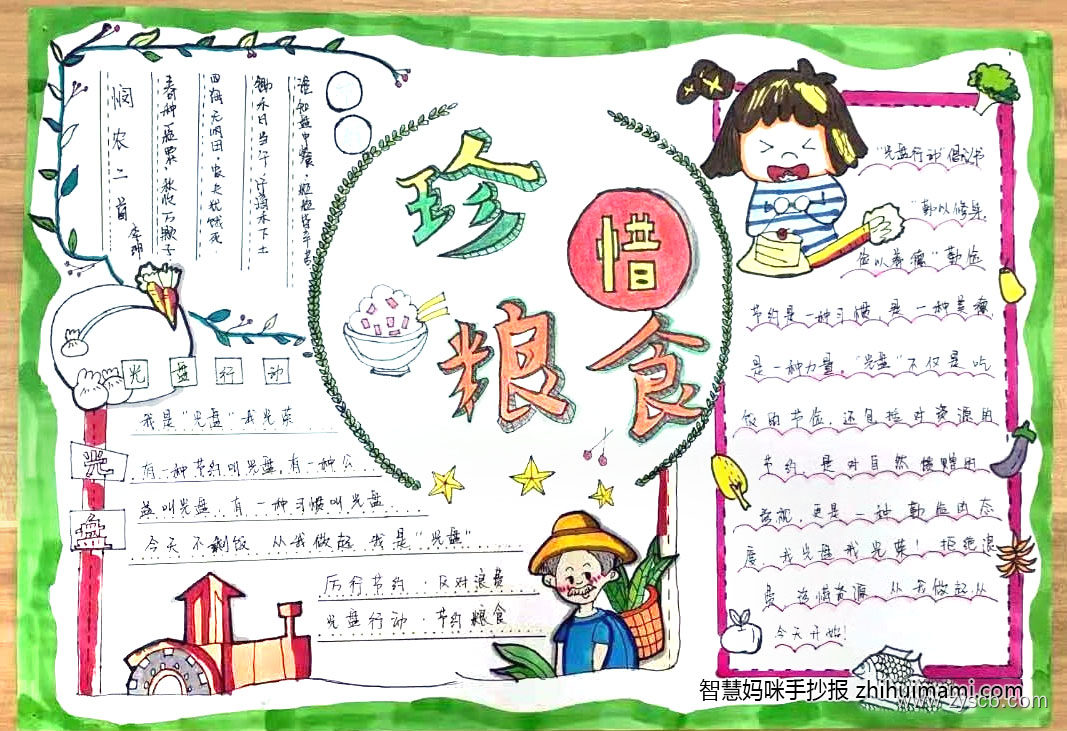 珍惜
粮食
悯农二首 李绅
春种一粒粟,秋收万颗子
四海无闲田,农夫犹饿死
锄禾日当午,汗滴禾下土
谁知盘中餐,粒粒皆辛苦
光盘行动
光盘
我是"光盘"我光荣
有一种节约叫光盘,有一种公
益叫光盘,有一种习惯叫光盘
今天不剩饭 从我做起 我是"光盘"
厉行节约·反对浪费
光盘行动·节约粮食
"光盘行动"倡议书
"勤以修身,
俭以养德"勤俭
节约是一种习惯,是一种美德
是一种力量。"光盘"不仅是吃
饭的节俭,还包括对资源的
节约,是对自然馈赠的
珍视,更是一种勤俭的态
度,我光盘我光荣!拒绝浪
费,珍惜资源,从我做起从
今天开始!
智慧妈咪手抄报 zhihuimami.com
www.zyscb.com